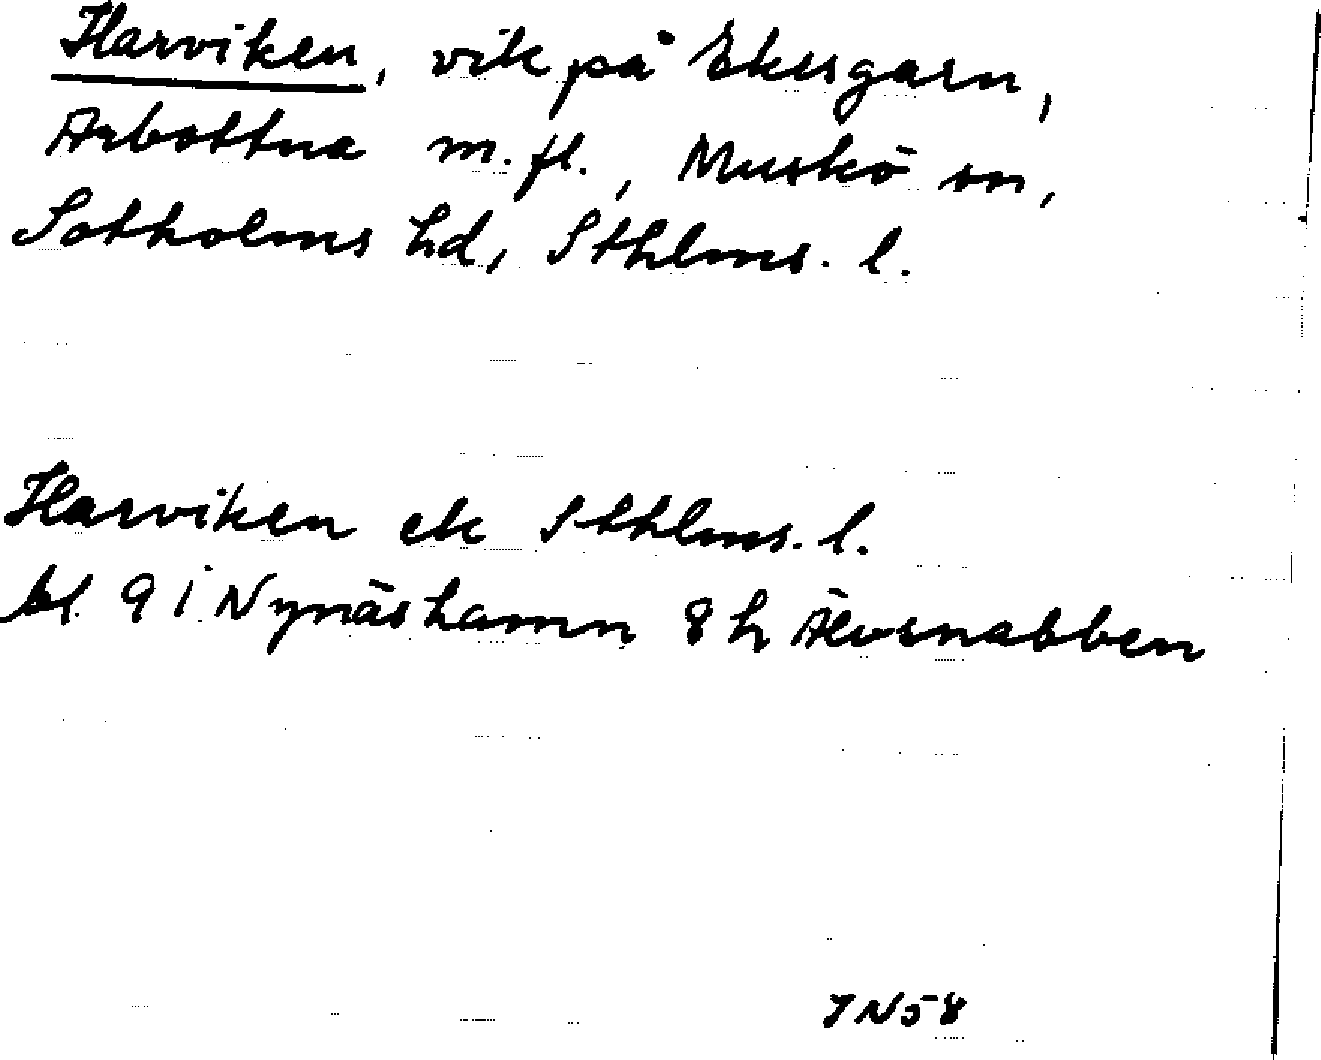 Harviken, vik på Ekusgarn,
Arbottna m.fl., Muskö sn,
Sotholms hd, Sthlms. l.
Harviken ek Sthlms. l.
bl. 9 i Nynäshamn 8 h Älvsnabben
JN58